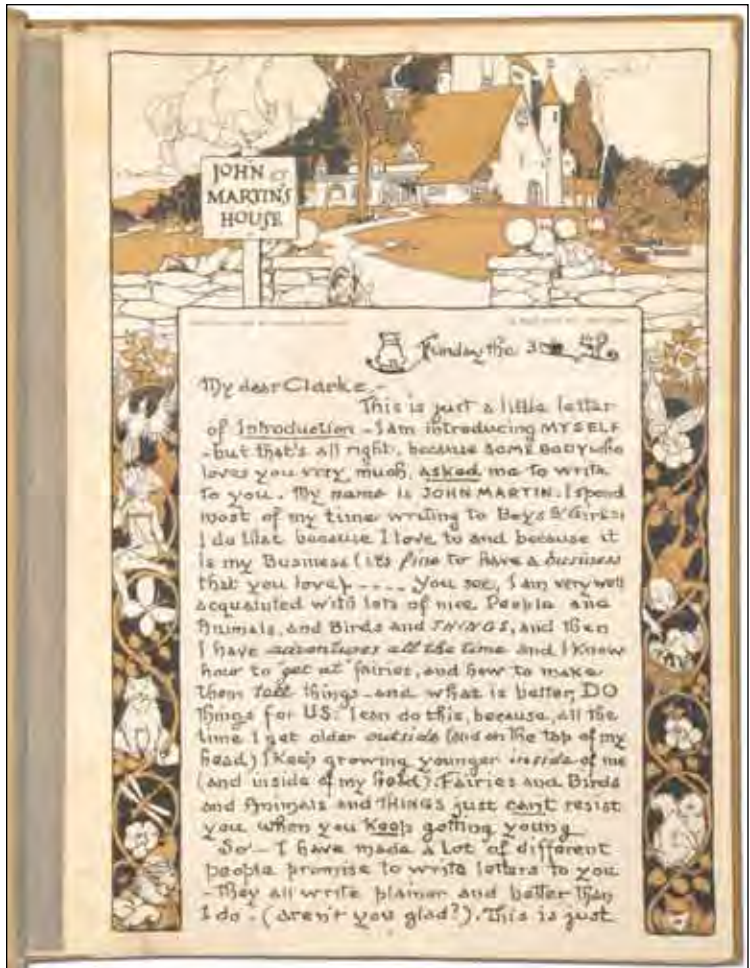 JOHN
MARTIN'S
HOUSE
Funday the 3
My dear Clarke,-
This is just a little letter
of Introduction - I am introducing MYSELF
- but that's all right, because SOME BODY who
loves you very much, asked me to write
to you. My name is JOHN MARTIN. I spend
most of my time writing to Boys & Girls;
I do that because I love to and because it
is my Business (its fine to have a business
that you love). - - - - You see, I am very well
acquainted with lots of nice People and
Animals, and Birds and THINGS, and then
I have adventures all the time and I know
how to "get at" fairies, and how to make
them tell things - and what is better, DO
things for US. I can do this, because, all the
time I get older outside (and on the top of my
head) I keep growing younger inside of me
(and inside of my head). Fairies and Birds
and Animals and THINGS just can't resist
you when you keep getting young
So - I have made a lot of different
people promise to write letters to you
- They all write plainer and better than
I do - (aren't you glad?). This is just